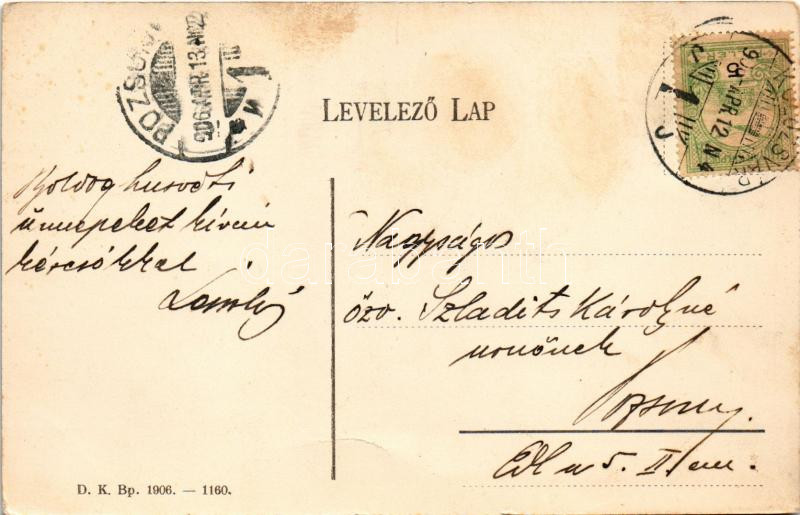 POZSONY
906 APR. 13. N
LEVELEZŐ LAP
KOLOZSVÁR
APR 12 N 4
Boldog husvéti
ünnepeket kíván
kézcsókkal
Nagyságos
özv. Szladits Károlyné
urnőnek
Pozsony.
Edl u 5. II. em.
darabanth
D. K. Bp. 1906. — 1160.